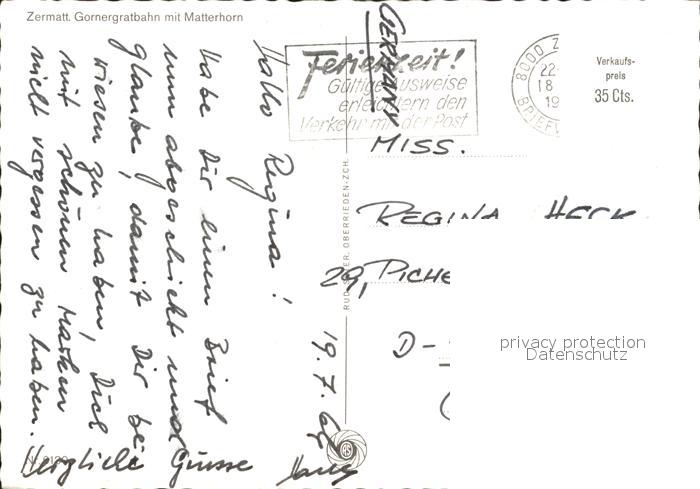 Zermatt. Gornergratbahn mit Matterhorn
Hallo Regina!
19.7.68
Habe Dir einen Brief
nun abgeschickt und
glaube, damit Dir be
wiesen zu haben, Dich
mit schönen Marken
nicht vergessen zu haben.
Herzliche Grüsse
Ferienzeit!
Gültige Ausweise
erleichtern den
Verkehr mit der Post
8000 Z
22-
18
19
BRIEF
Verkaufs-
preis
35 Cts.
GERMANY
MISS.
REGINA HECK
29, PICHE
D-
OBERRIEDEN-ZCH.
privacy protection
Datenschutz